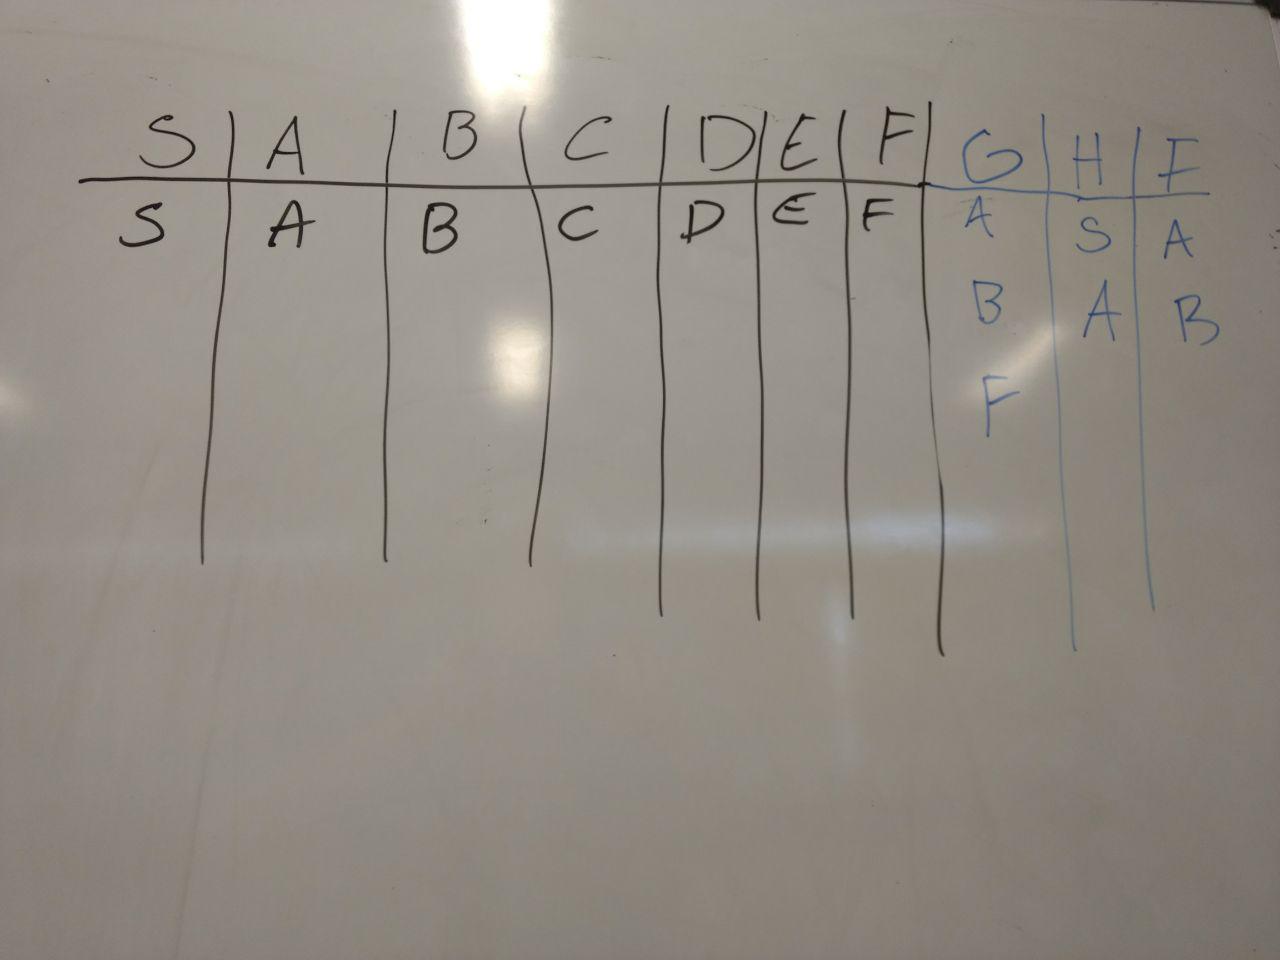 S A B C D E F G H I
S A B C D E F A S A
B A B
F